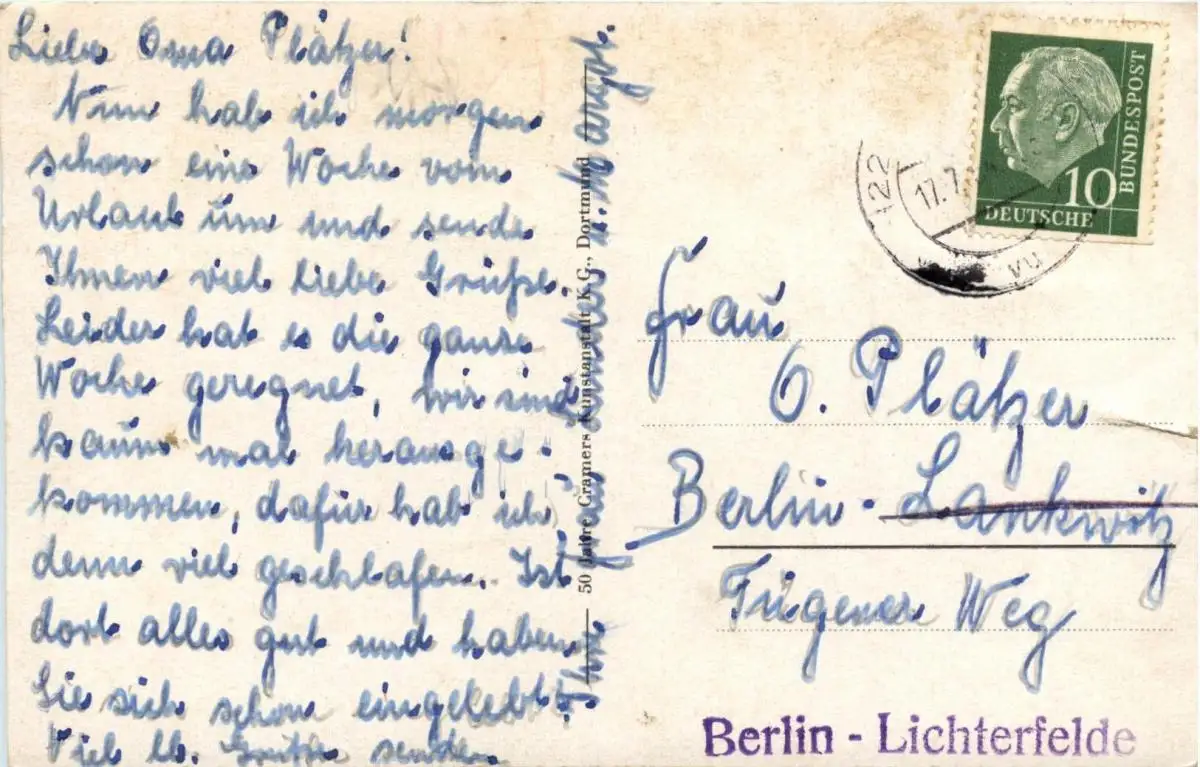 Liebe Oma Plätzer!
Nun hab ich morgen
schon eine Woche vom
Urlaub um und sende
Ihnen viel liebe Grüße.
Leider hat es die ganze
Woche geregnet, wir sind
kaum mal herausge-
kommen, dafür hab ich
denn viel geschlafen. Ist
dort alles gut und haben
Sie sich schon eingelebt?
Viel lb. Grüße senden
Ihnen
u. Margot.
50 Jahre Cramers Kunstanstalt K.G., Dortmund
10
DEUTSCHE
BUNDESPOST
(22
17.7.
Frau
O. Plätzer
Berlin-Lankwitz
Tügener Weg
Berlin - Lichterfelde